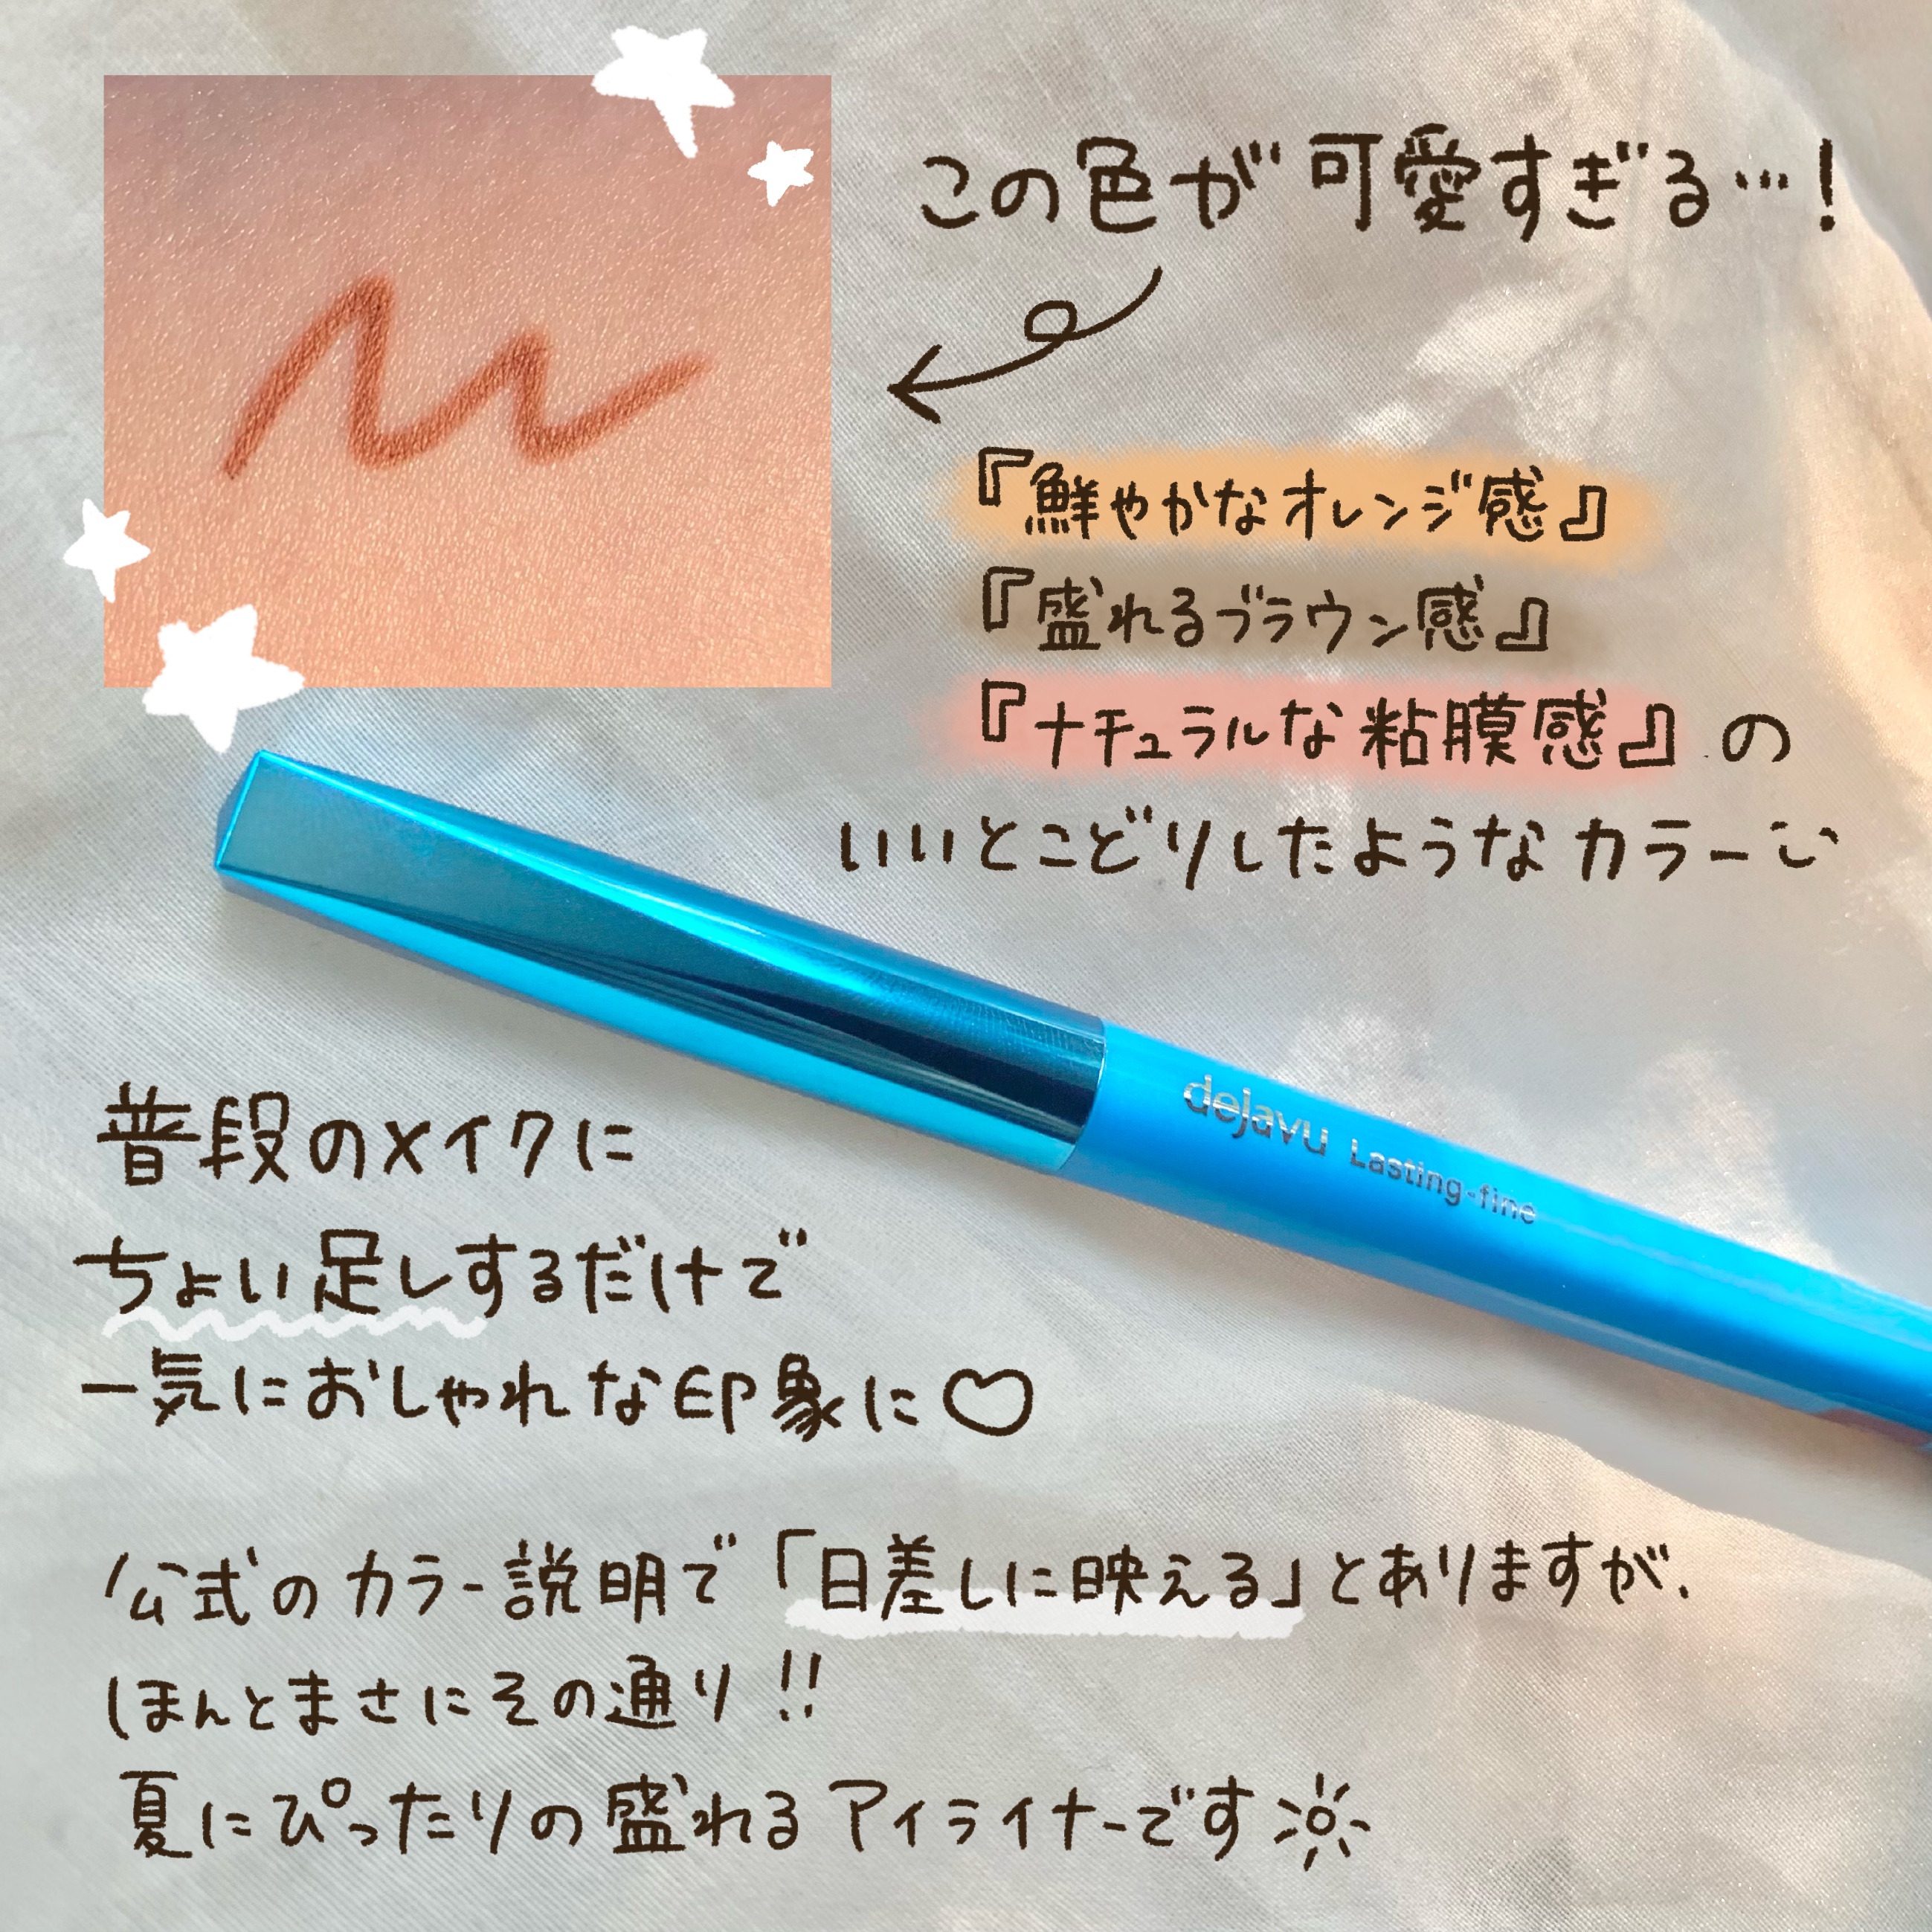 この色が可愛すぎる…!
『鮮やかなオレンジ感』
『盛れるブラウン感』
『ナチュラルな粘膜感』の
いいとこどりしたようなカラー
dejavu Lasting-fine
普段のメイクに
ちょい足しするだけで
一気におしゃれな印象に♡
公式のカラー説明で「日差しに映える」とありますが、
ほんとまさにその通り!!
夏にぴったりの盛れるアイライナーです